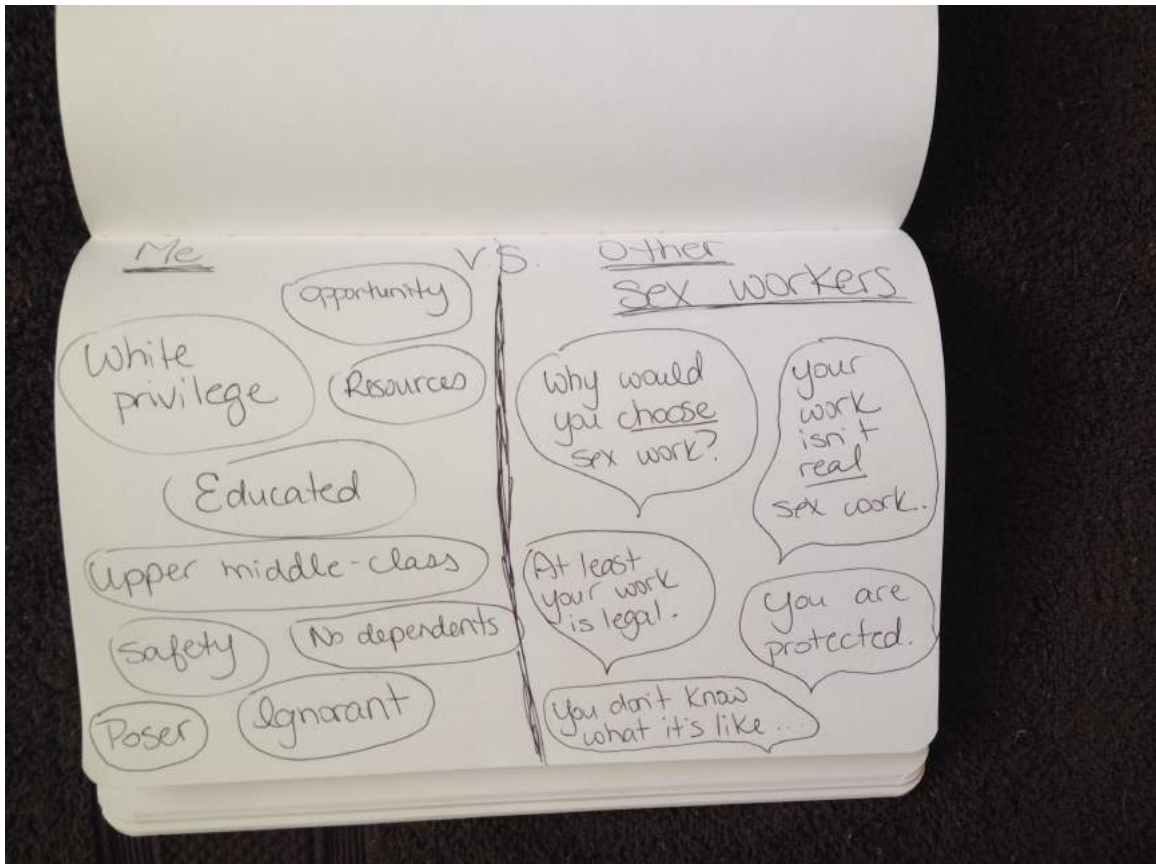 Me
Opportunity
White
privilege
Resources
Educated
Upper middle-class
Safety
No dependents
Poser
Ignorant
v.s.
Other
Sex workers
Why would
you choose
sex work?
your
work
isn't
real
sex work.
At least
your work
is legal.
You are
protected.
You don't know
what it's like...